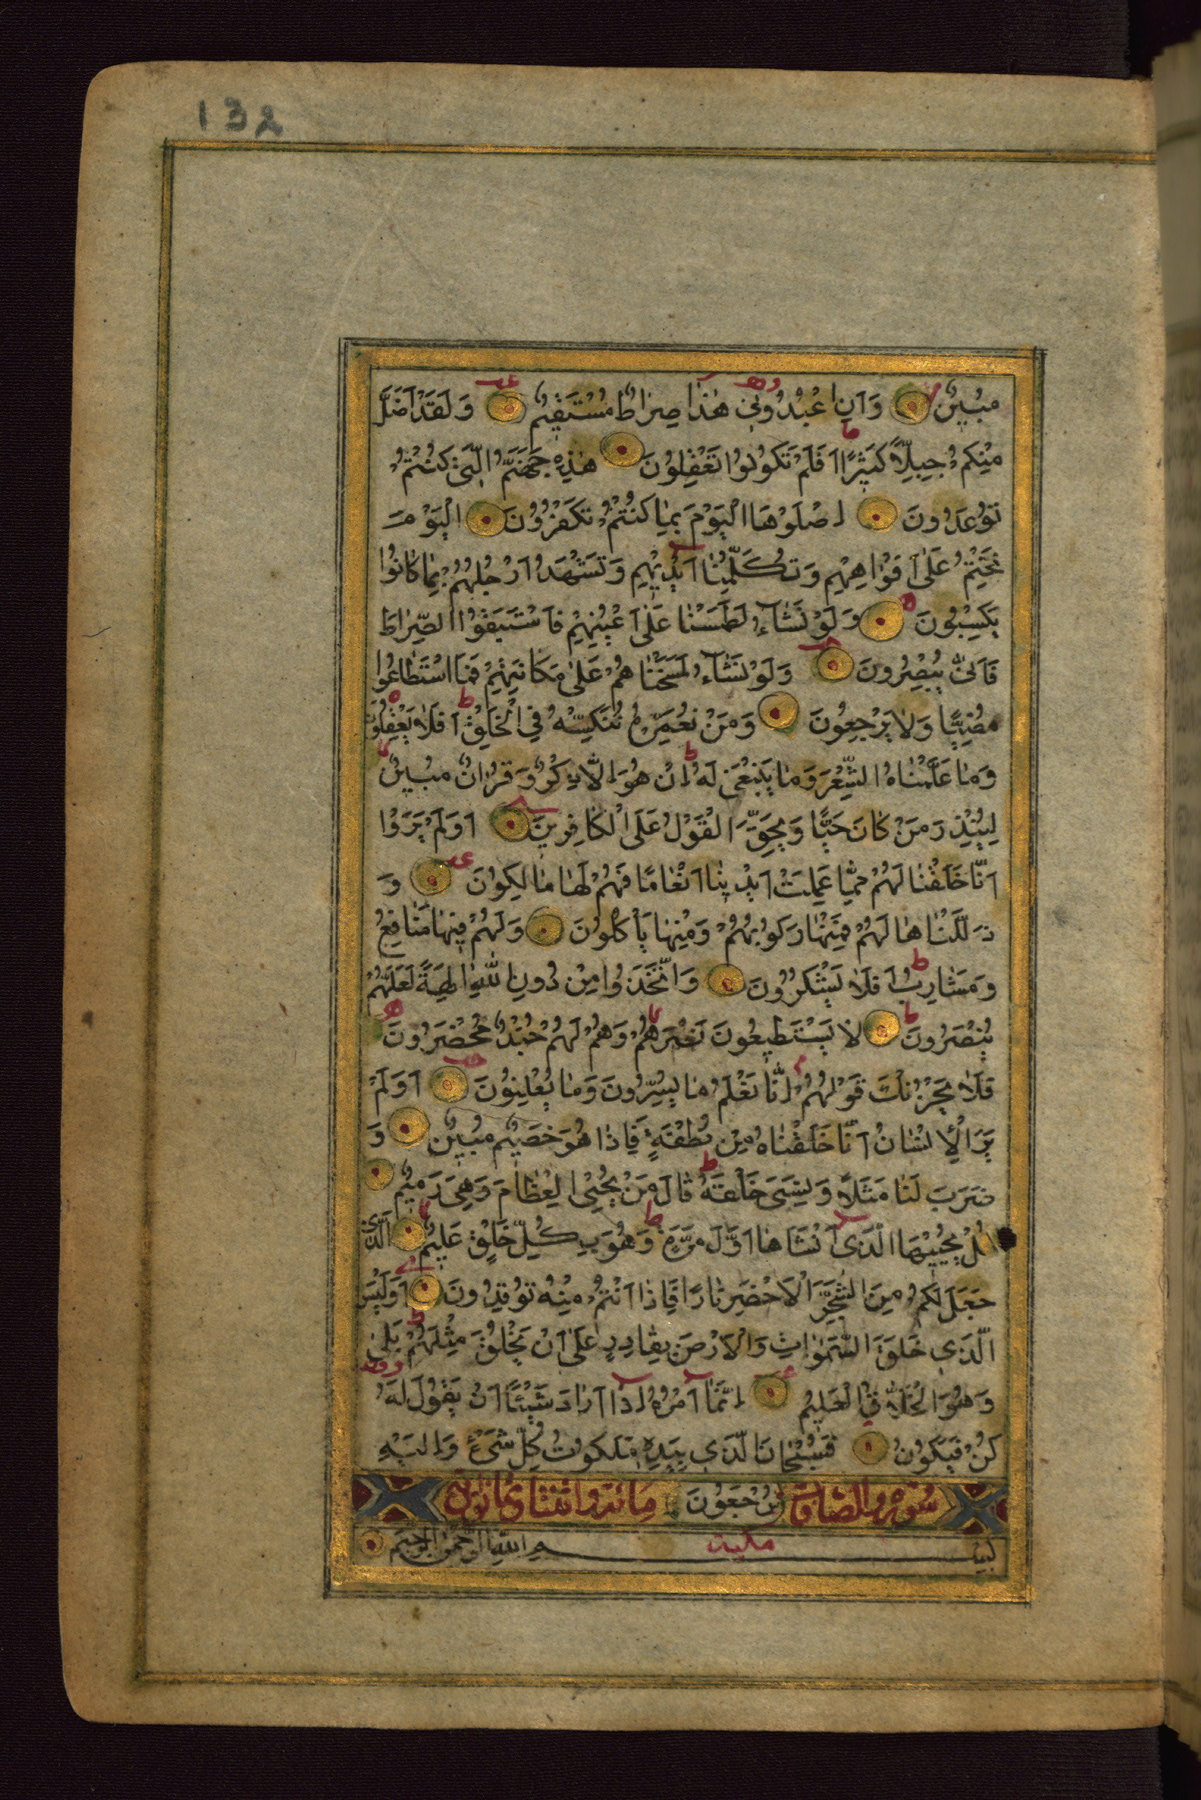 132
مُبِينٌ وَأَنِ اعْبُدُونِي هٰذَا صِرَاطٌ مُسْتَقِيمٌ وَلَقَدْ أَضَلَّ
مِنْكُمْ جِبِلًّا كَثِيرًا أَفَلَمْ تَكُونُوا تَعْقِلُونَ هٰذِهِ جَهَنَّمُ الَّتِي كُنْتُمْ
تُوعَدُونَ اصْلَوْهَا الْيَوْمَ بِمَا كُنْتُمْ تَكْفُرُونَ الْيَوْمَ
نَخْتِمُ عَلَى أَفْوَاهِهِمْ وَتُكَلِّمُنَا أَيْدِيهِمْ وَتَشْهَدُ أَرْجُلُهُمْ بِمَا كَانُوا
يَكْسِبُونَ وَلَوْ نَشَاءُ لَطَمَسْنَا عَلَى أَعْيُنِهِمْ فَاسْتَبَقُوا الصِّرَاطَ
فَأَنَّى يُبْصِرُونَ وَلَوْ نَشَاءُ لَمَسَخْنَاهُمْ عَلَى مَكَانَتِهِمْ فَمَا اسْتَطَاعُوا
مُضِيًّا وَلَا يَرْجِعُونَ وَمَنْ نُعَمِّرْهُ نُنَكِّسْهُ فِي الْخَلْقِ أَفَلَا يَعْقِلُونَ
وَمَا عَلَّمْنَاهُ الشِّعْرَ وَمَا يَنْبَغِي لَهُ إِنْ هُوَ إِلَّا ذِكْرٌ وَقُرْآنٌ مُبِينٌ
لِيُنْذِرَ مَنْ كَانَ حَيًّا وَيَحِقَّ الْقَوْلُ عَلَى الْكَافِرِينَ أَوَلَمْ يَرَوْا
أَنَّا خَلَقْنَا لَهُمْ مِمَّا عَمِلَتْ أَيْدِينَا أَنْعَامًا فَهُمْ لَهَا مَالِكُونَ وَ
ذَلَّلْنَاهَا لَهُمْ فَمِنْهَا رَكُوبُهُمْ وَمِنْهَا يَأْكُلُونَ وَلَهُمْ فِيهَا مَنَافِعُ
وَمَشَارِبُ أَفَلَا يَشْكُرُونَ وَاتَّخَذُوا مِنْ دُونِ اللّٰهِ آلِهَةً لَعَلَّهُمْ
يُنْصَرُونَ لَا يَسْتَطِيعُونَ نَصْرَهُمْ وَهُمْ لَهُمْ جُنْدٌ مُحْضَرُونَ
فَلَا يَحْزُنْكَ قَوْلُهُمْ إِنَّا نَعْلَمُ مَا يُسِرُّونَ وَمَا يُعْلِنُونَ أَوَلَمْ
يَرَ الْإِنْسَانُ أَنَّا خَلَقْنَاهُ مِنْ نُطْفَةٍ فَإِذَا هُوَ خَصِيمٌ مُبِينٌ وَ
ضَرَبَ لَنَا مَثَلًا وَنَسِيَ خَلْقَهُ قَالَ مَنْ يُحْيِي الْعِظَامَ وَهِيَ رَمِيمٌ
قُلْ يُحْيِيهَا الَّذِي أَنْشَأَهَا أَوَّلَ مَرَّةٍ وَهُوَ بِكُلِّ خَلْقٍ عَلِيمٌ الَّذِي
جَعَلَ لَكُمْ مِنَ الشَّجَرِ الْأَخْضَرِ نَارًا فَإِذَا أَنْتُمْ مِنْهُ تُوقِدُونَ أَوَلَيْسَ
الَّذِي خَلَقَ السَّمٰوَاتِ وَالْأَرْضَ بِقَادِرٍ عَلَى أَنْ يَخْلُقَ مِثْلَهُمْ بَلَى
وَهُوَ الْخَلَّاقُ الْعَلِيمُ إِنَّمَا أَمْرُهُ إِذَا أَرَادَ شَيْئًا أَنْ يَقُولَ لَهُ
كُنْ فَيَكُونُ فَسُبْحَانَ الَّذِي بِيَدِهِ مَلَكُوتُ كُلِّ شَيْءٍ وَإِلَيْهِ
سورة والصافات تُرْجَعُونَ مائة واثنتان وثمانون آية
بِسْمِ اللّٰهِ الرَّحْمٰنِ الرَّحِيمِ مكية